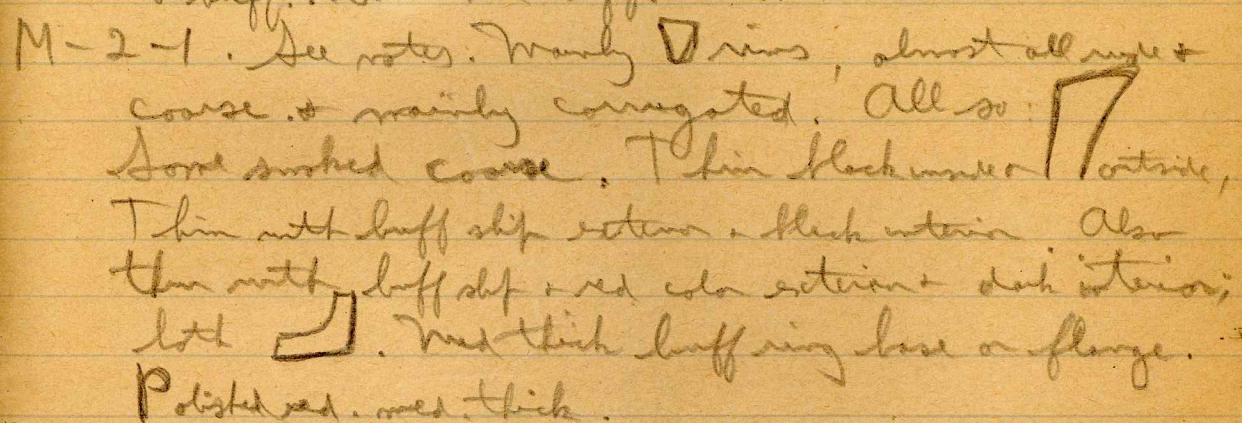 M-2-1. See notes. Mainly rims, almost all rude &
coarse & mainly corrugated. All so
Some smoked coarse. Thin black inside outside,
Thin with buff slip exterior & black interior. Also
thin with buff slip & red color exterior & dark interior;
both . Med thick buff ring base or flange.
Polished red. med. thick.